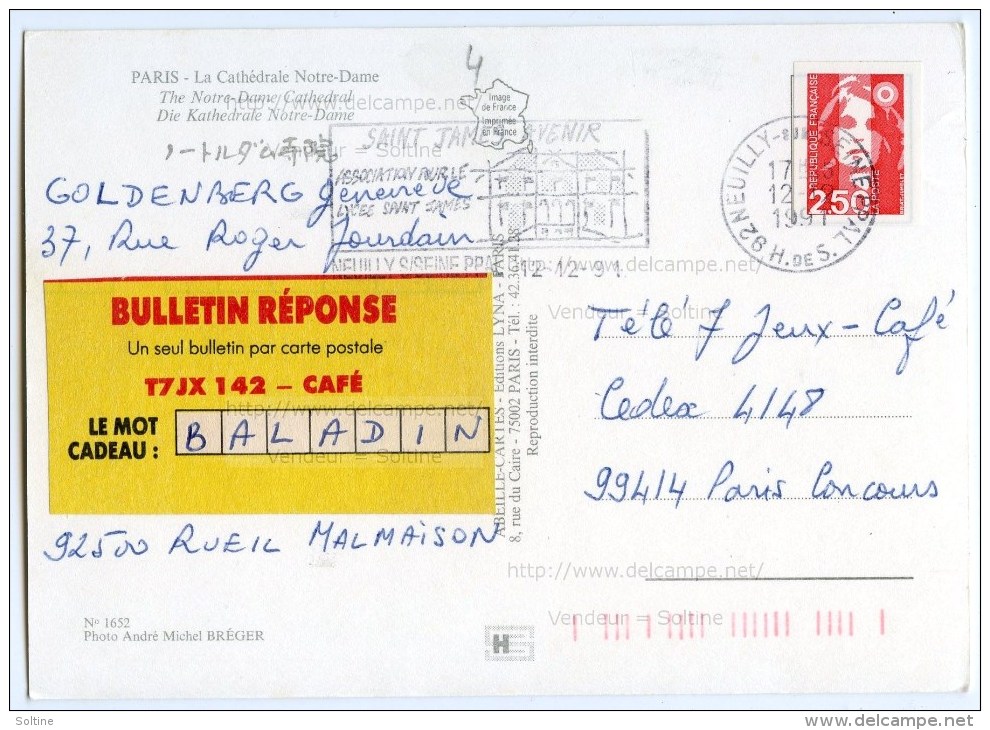 PARIS - La Cathédrale Notre-Dame
The Notre-Dame Cathedral
Die Kathedrale Notre-Dame
ノートルダム寺院
4
Image
de France
Imprimée
en France
SAINT JAMES AVENIR
ASSOCIATION POUR LE
LYCEE SAINT JAMES
NEUILLY S/SEINE PPAL 12-12-91
92 NEUILLY-SUR-SEINE PPAL
H. DE S.
17H
12-12
1991
REPUBLIQUE FRANÇAISE
2,50
LA POSTE
GOLDENBERG Geneviève
37, Rue Roger Jourdain
BULLETIN RÉPONSE
Un seul bulletin par carte postale
T7JX 142 – CAFÉ
LE MOT
CADEAU :
BALADIN
92500 RUEIL MALMAISON
ABEILLE-CARTES - Editions LYNA - PARIS
8, rue du Caire - 75002 PARIS - Tél. : 42.36.41.28
Reproduction interdite
Télé 7 Jeux - Café
Cedex 4148
99414 Paris Concours
Nº 1652
Photo André Michel BRÉGER
HS
http://www.delcampe.net/
Vendeur = Soltine
http://www.delcampe.net/
Vendeur = Soltine
http://www.delcampe.net/
Vendeur = Soltine
http://www.delcampe.net/
Vendeur = Soltine
Soltine
www.delcampe.net